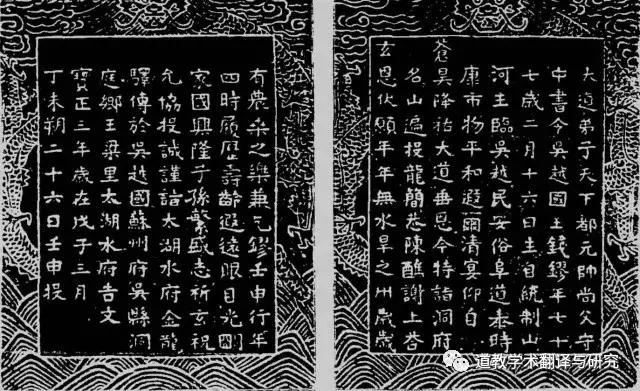 大道弟子天下都元帥尚父守
中書令吳越國王錢鏐年七十
七歲二月十六日生自統制山
河主臨吳越民安俗阜道泰時
康市物平和遐邇清宴仰自
蒼昊降祐大道垂恩今特詣洞府
名山遍投龍簡恭陳醮謝上荅
玄恩伏願年年無水旱之州歲歲
有農桑之樂兼乞鏐壬申行年
四時履歷壽齡遐遠眼目光明
家國興隆子孫繁盛志祈玄祝
允協投誠謹詣太湖水府金龍
驛傳於吳越國蘇州府吳縣洞
庭鄉王梁里太湖水府告文
寶正三年歲在戊子三月
丁未朔二十六日壬申投
道教学术翻译与研究